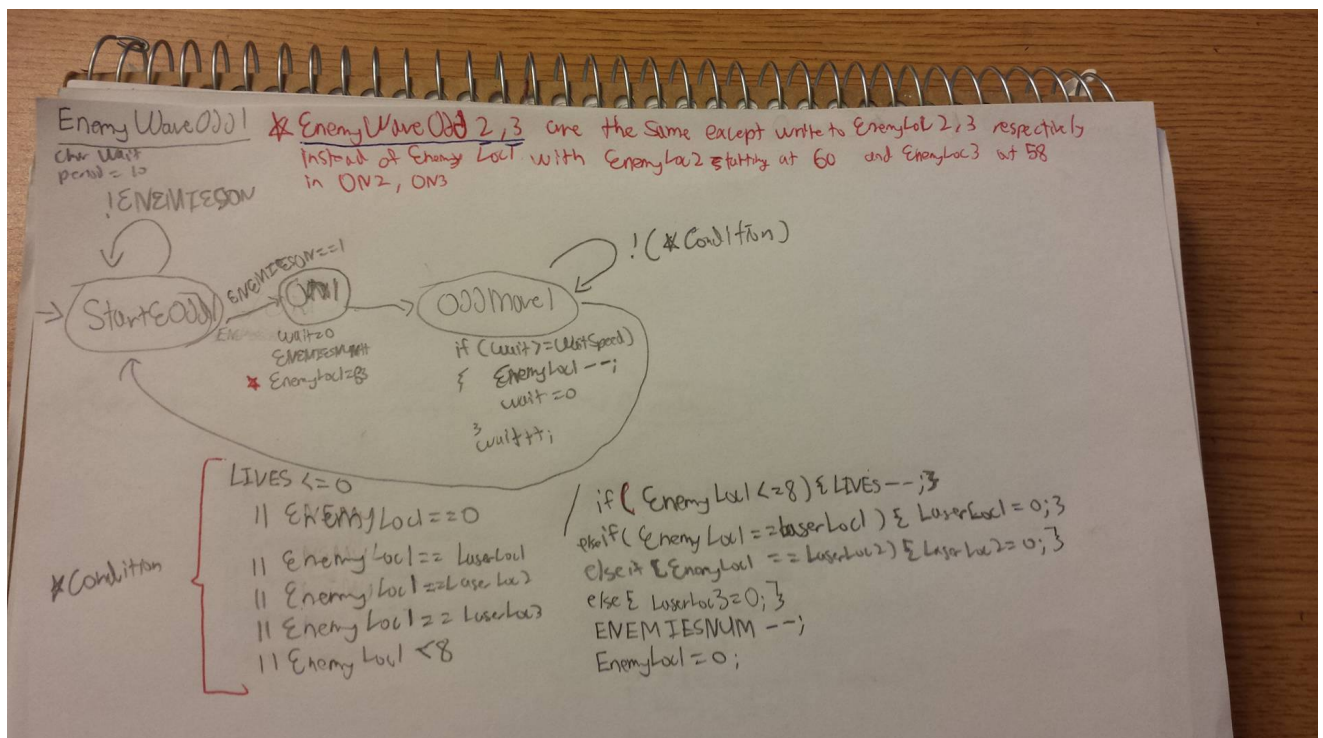 EnemyWaveOdd1
* EnemyWaveOdd 2,3 are the same except write to EnemyLoc 2,3 respectively
char wait
instead of Enemy Loc1 with EnemyLoc2 starting at 60 and EnemyLoc3 at 58
period = 10
in ON2, ON3
!ENEMIESON
!(*Condition)
ENEMIESON==1
StartEOdd1
ON1
OddMove1
wait=0
*EnemyLoc1=
if (wait>=WaitSpeed)
{ EnemyLoc1--;
wait=0
}
wait++;
*Condition
LIVES <=0
|| ENEMYLoc1==0
|| EnemyLoc1== LaserLoc1
|| EnemyLoc1==LaserLoc2
|| EnemyLoc1== LaserLoc3
|| EnemyLoc1 <8
/ if( EnemyLoc1<=8){LIVES--;}
elseif( EnemyLoc1==LaserLoc1){ LaserLoc1=0;}
elseif {EnemyLoc1 ==LaserLoc2){LaserLoc2=0;}
else{ LaserLoc3=0;}
ENEMIESNUM--;
EnemyLoc1=0;